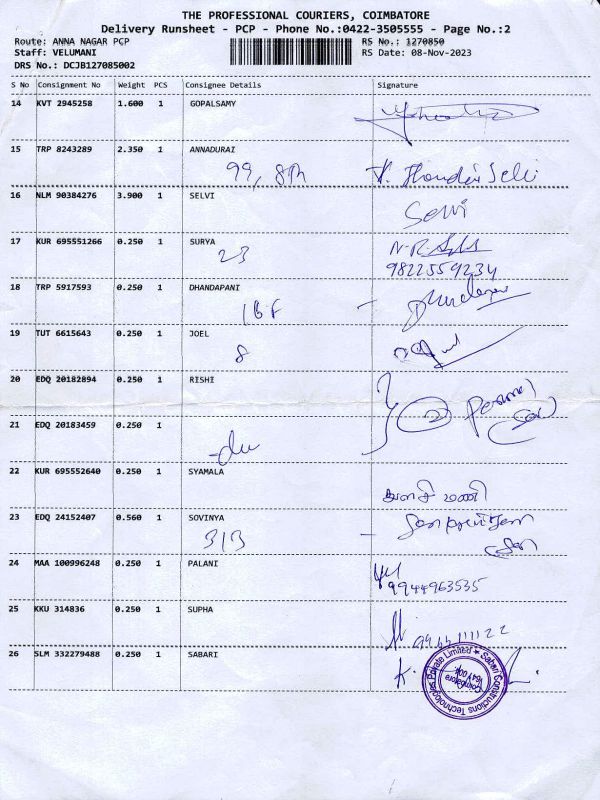 THE PROFESSIONAL COURIERS, COIMBATORE
Delivery Runsheet - PCP - Phone No.:0422-3505555 - Page No.:2
Route: ANNA NAGAR PCP RS No.: 1270850
Staff: VELUMANI RS Date: 08-Nov-2023
DRS No.: DCJB127085002
S No Consignment No Weight PCS Consignee Details Signature
14 KVT 2945258 1.600 1 GOPALSAMY
15 TRP 8243289 2.350 1 ANNADURAI
99, 8th
16 NLM 90384276 3.900 1 SELVI
Selvi
17 KUR 695551266 0.250 1 SURYA
23 9822559234
18 TRP 5917593 0.250 1 DHANDAPANI
19 TUT 6615643 0.250 1 JOEL
8
20 EDQ 20182894 0.250 1 RISHI
21 EDQ 20183459 0.250 1
22 KUR 695552640 0.250 1 SYAMALA
மணி
23 EDQ 24152407 0.560 1 SOVINYA
313
24 MAA 100996248 0.250 1 PALANI
9944963535
25 KKU 314836 0.250 1 SUPHA
26 SLM 332279488 0.250 1 SABARI
K.
Sabari Constructions Technologies Private Limited
Coimbatore
641 004.